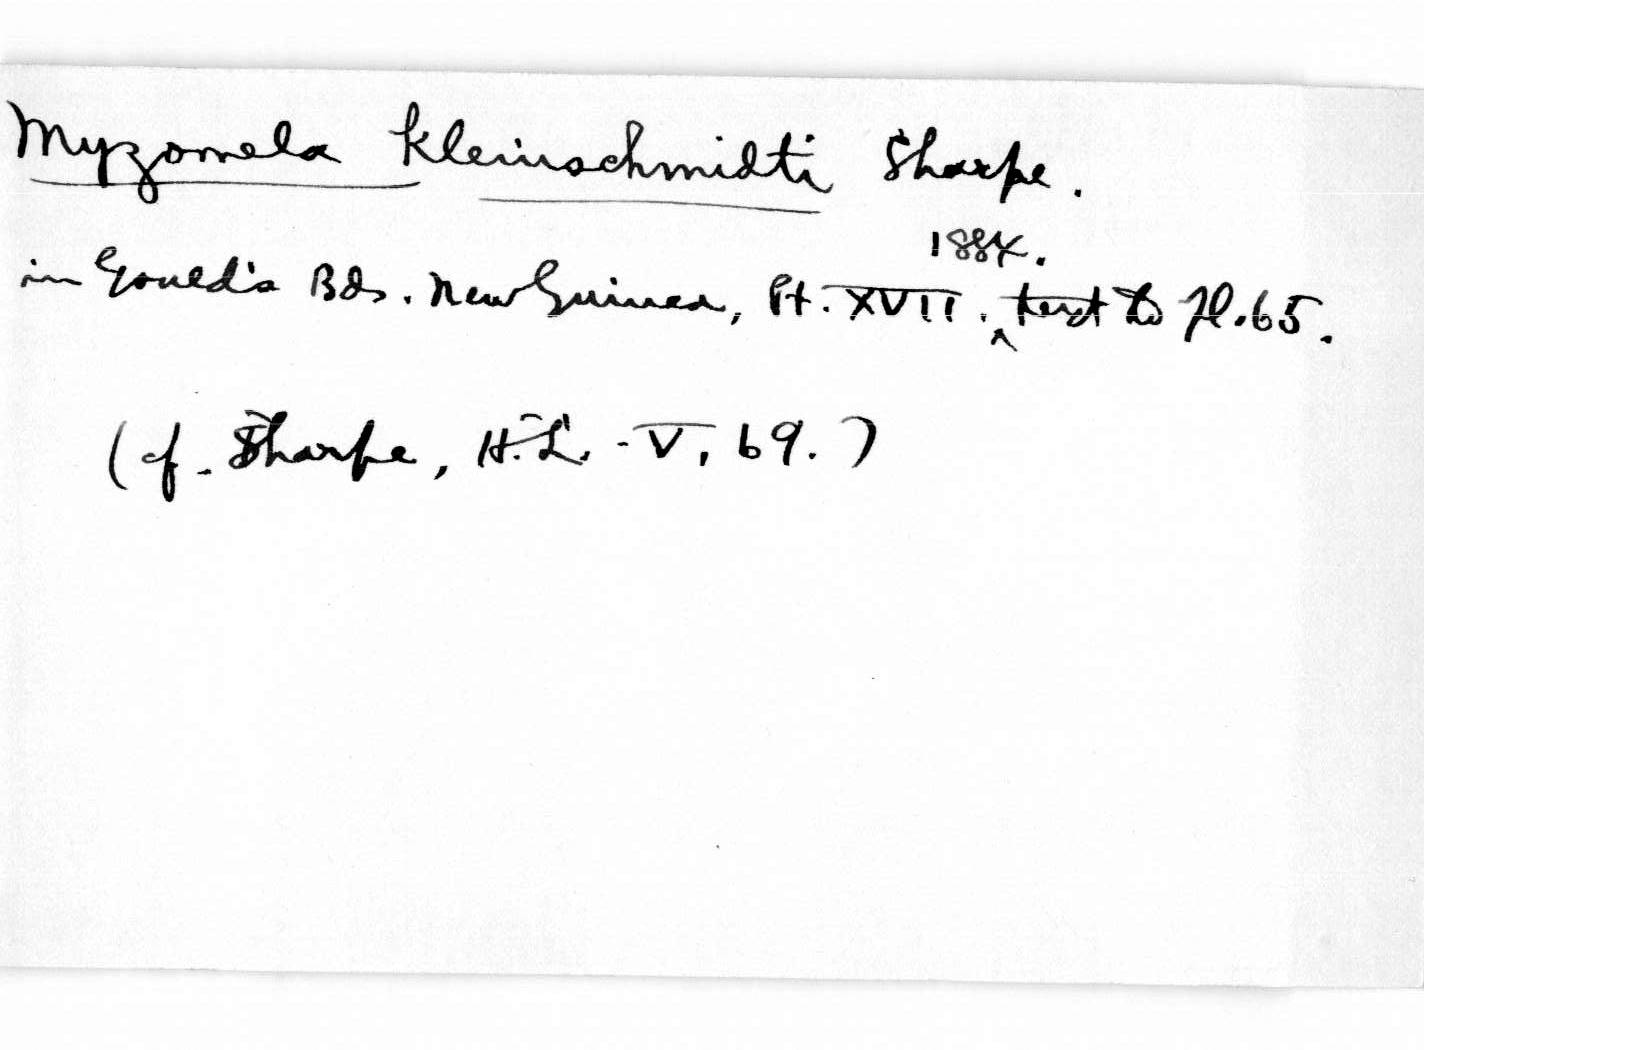 Myzomela kleinschmidti Sharpe.
1884.
in Gould's Bds. New Guinea, Pt. XVII. ^ text to pl. 65.
(cf. Sharpe, H.L. V, 69.)